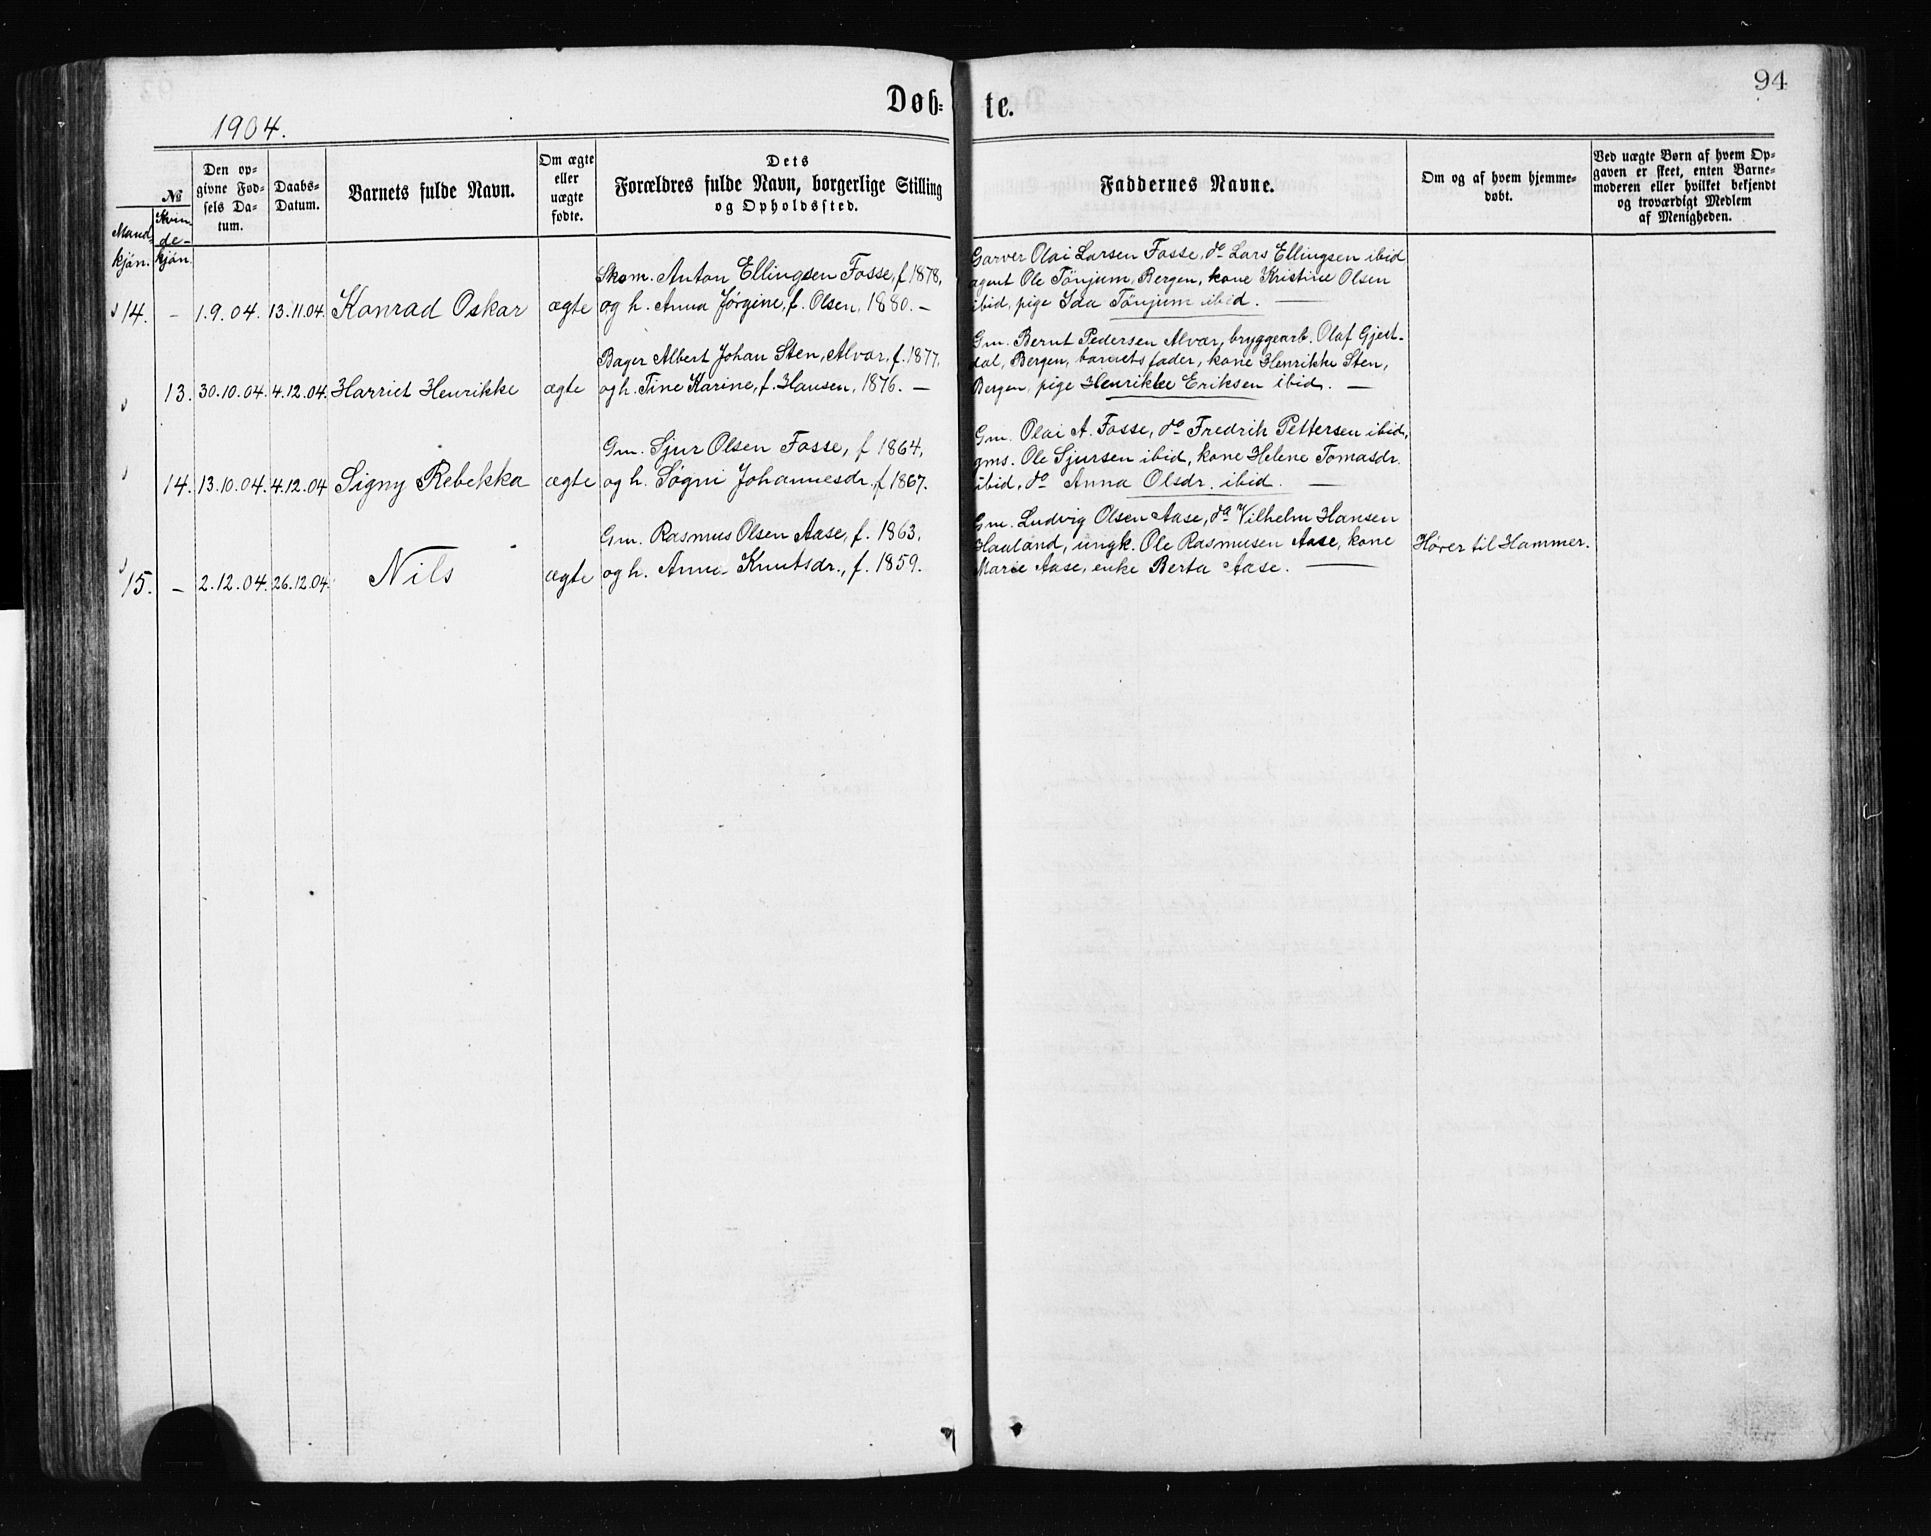 94
Døb= te.
1904.
№
Mand-
kjön.
Kvin
de-
kjön.
Den op-
givne Fød-
sels Da-
tum.
Daabs-
Datum.
Barnets fulde Navn.
Om ægte
eller
uægte
fødte.
Dets
Forældres fulde Navn, borgerlige Stilling
og Opholdssted.
Faddernes Navne.
Om og af hvem hjemme-
døbt.
Ved uægte Børn af hvem Op-
gaven er skeet, enten Barne-
moderen eller hvilket bekjendt
og troværdigt Medlem
af Menigheden.
14. – 1.9.04. 13.11.04. Konrad Oskar ægte
Skom. Anton Ellingsen Fosse, f. 1878,
og h. Anna Jørgine, f. Olsen, 1880. –
Garver Olai Larsen Fosse, do Lars Ellingsen ibid
agent Ole Tönjum, Bergen, kone Kristine Olsen
ibid, pige Ida Tönjum ibid. —
13. 30.10.04. 4.12.04. Harriet Henrikke ægte
Bager Albert Johan Sten, Alvar, f. 1877,
og h. Tine Karine, f. Hansen, 1876. –
Gm. Bernt Pedersen Alvar, bryggearb. Olaf Gjest-
dal, Bergen, barnets fader, kone Henrikke Sten,
Bergen, pige Henrikke Eriksen ibid. —
14. 13.10.04. 4.12.04 Signy Rebekka ægte
Gm. Sjur Olsen Fosse, f 1864,
og h. Søgni Johannesdr., f 1867.
Gm. Olai A. Fosse, do Fredrik Pettersen ibid,
gms. Ole Sjursen ibid, kone Helene Tomasdr.
ibid, do Anna Olsdr. ibid. —
15. – 2.12.04. 26.12.04. Nils ægte
Gm. Rasmus Olsen Aase, f. 1863,
og h. Anna Knutsdr., f. 1859.
Gm. Ludvig Olsen Aase, do Vilhelm Hansen
Hauland, ungk. Ole Rasmusen Aase, kone
Marie Aase, enke Berta Aase. —
Hører til Hammer.